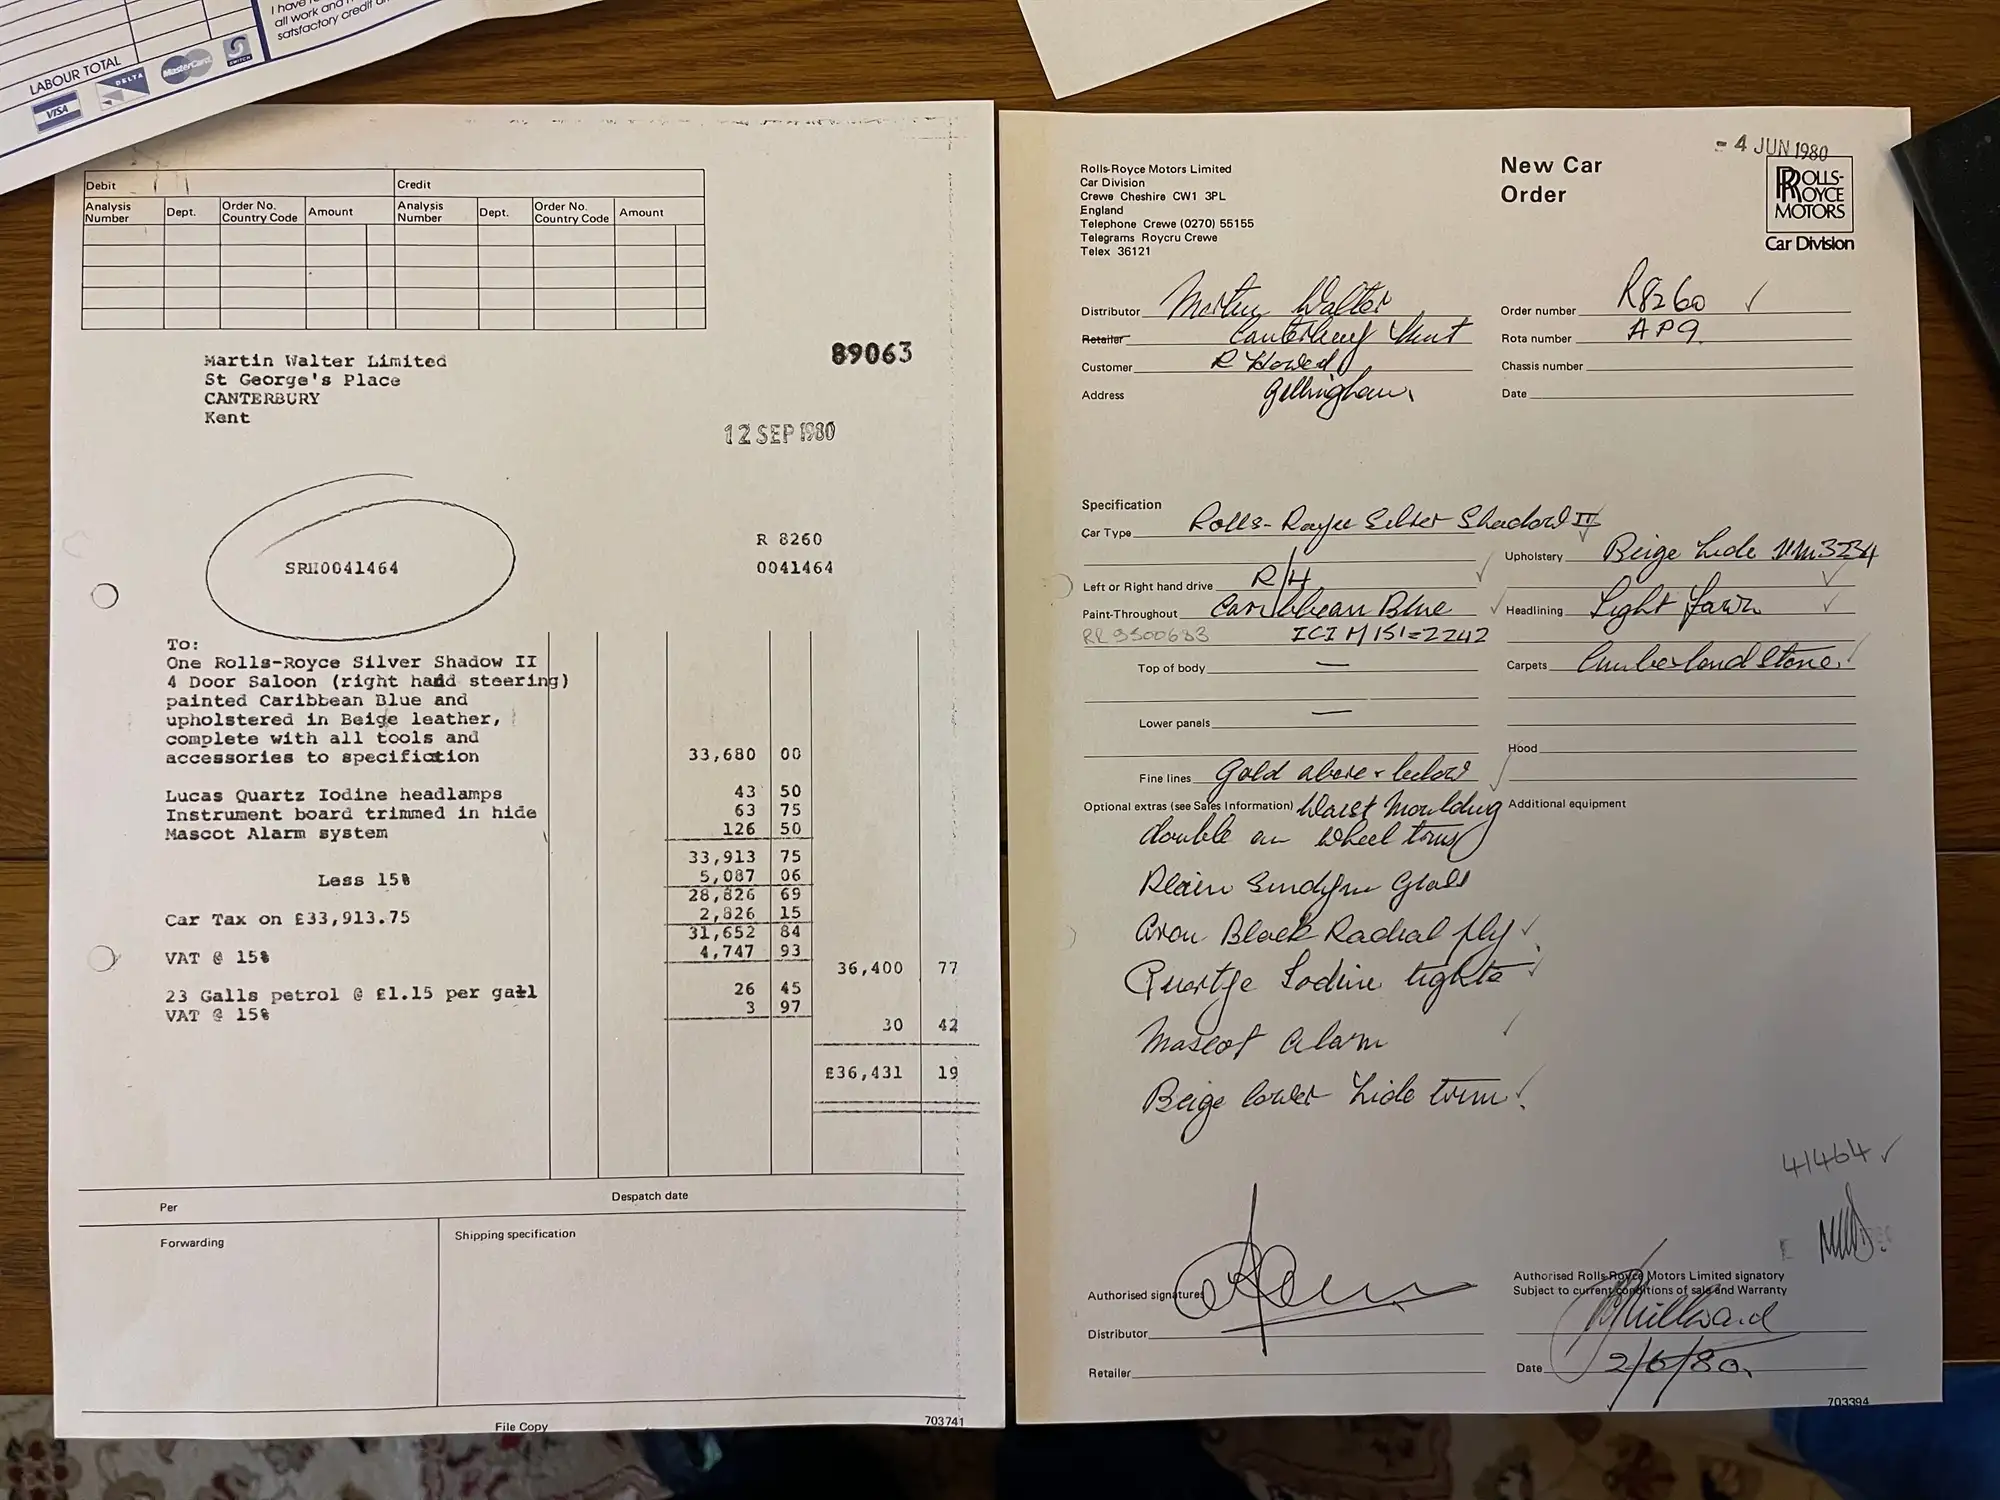 I have r
all work and
satsfactory credit
LABOUR TOTAL
VISA
DELTA
MasterCard
SWITCH
Debit
Credit
Analysis Number Dept. Order No. Country Code Amount Analysis Number Dept. Order No. Country Code Amount
Martin Walter Limited
St George's Place
CANTERBURY
Kent
89063
12 SEP 1980
R 8260
SRH0041464
0041464
To:
One Rolls-Royce Silver Shadow II
4 Door Saloon (right hand steering)
painted Caribbean Blue and
upholstered in Beige leather,
complete with all tools and
accessories to specifiction 33,680 00
Lucas Quartz Iodine headlamps 43 50
Instrument board trimmed in hide 63 75
Mascot Alarm system 126 50
33,913 75
Less 15% 5,087 06
28,826 69
Car Tax on £33,913.75 2,826 15
31,652 84
VAT @ 15% 4,747 93
36,400 77
23 Galls petrol @ £1.15 per gall 26 45
VAT @ 15% 3 97
30 42
£36,431 19
Despatch date
Per
Forwarding
Shipping specification
File Copy
703741
- 4 JUN 1980
Rolls-Royce Motors Limited
Car Division
Crewe Cheshire CW1 3PL
England
Telephone Crewe (0270) 55155
Telegrams Roycru Crewe
Telex 36121
New Car
Order
ROLLS-
ROYCE
MOTORS
Car Division
Distributor Martin Walter
Retailer Canterbury Kent
Customer R Howard
Address Gillingham
Order number R8260
Rota number AP9
Chassis number
Date
Specification
Car Type Rolls-Royce Silver Shadow II
Left or Right hand drive R/H
Paint-Throughout Caribbean Blue
RR 9500633 ICI M151=2242
Top of body —
Lower panels —
Fine lines Gold above + below
Upholstery Beige hide VM3234
Headlining Light Fawn
Carpets Cumberland Stone
Hood
Optional extras (see Sales Information) Waist Moulding
double on wheel trims
Plain Sundym Glass
Avon Black Radial ply
Quartz Iodine lights
Mascot Alarm
Beige lower hide trim
Additional equipment
41464
Authorised signatures
Distributor
Retailer
Authorised Rolls-Royce Motors Limited signatory
Subject to current conditions of sale and Warranty
Millward
Date 2/6/80
703394